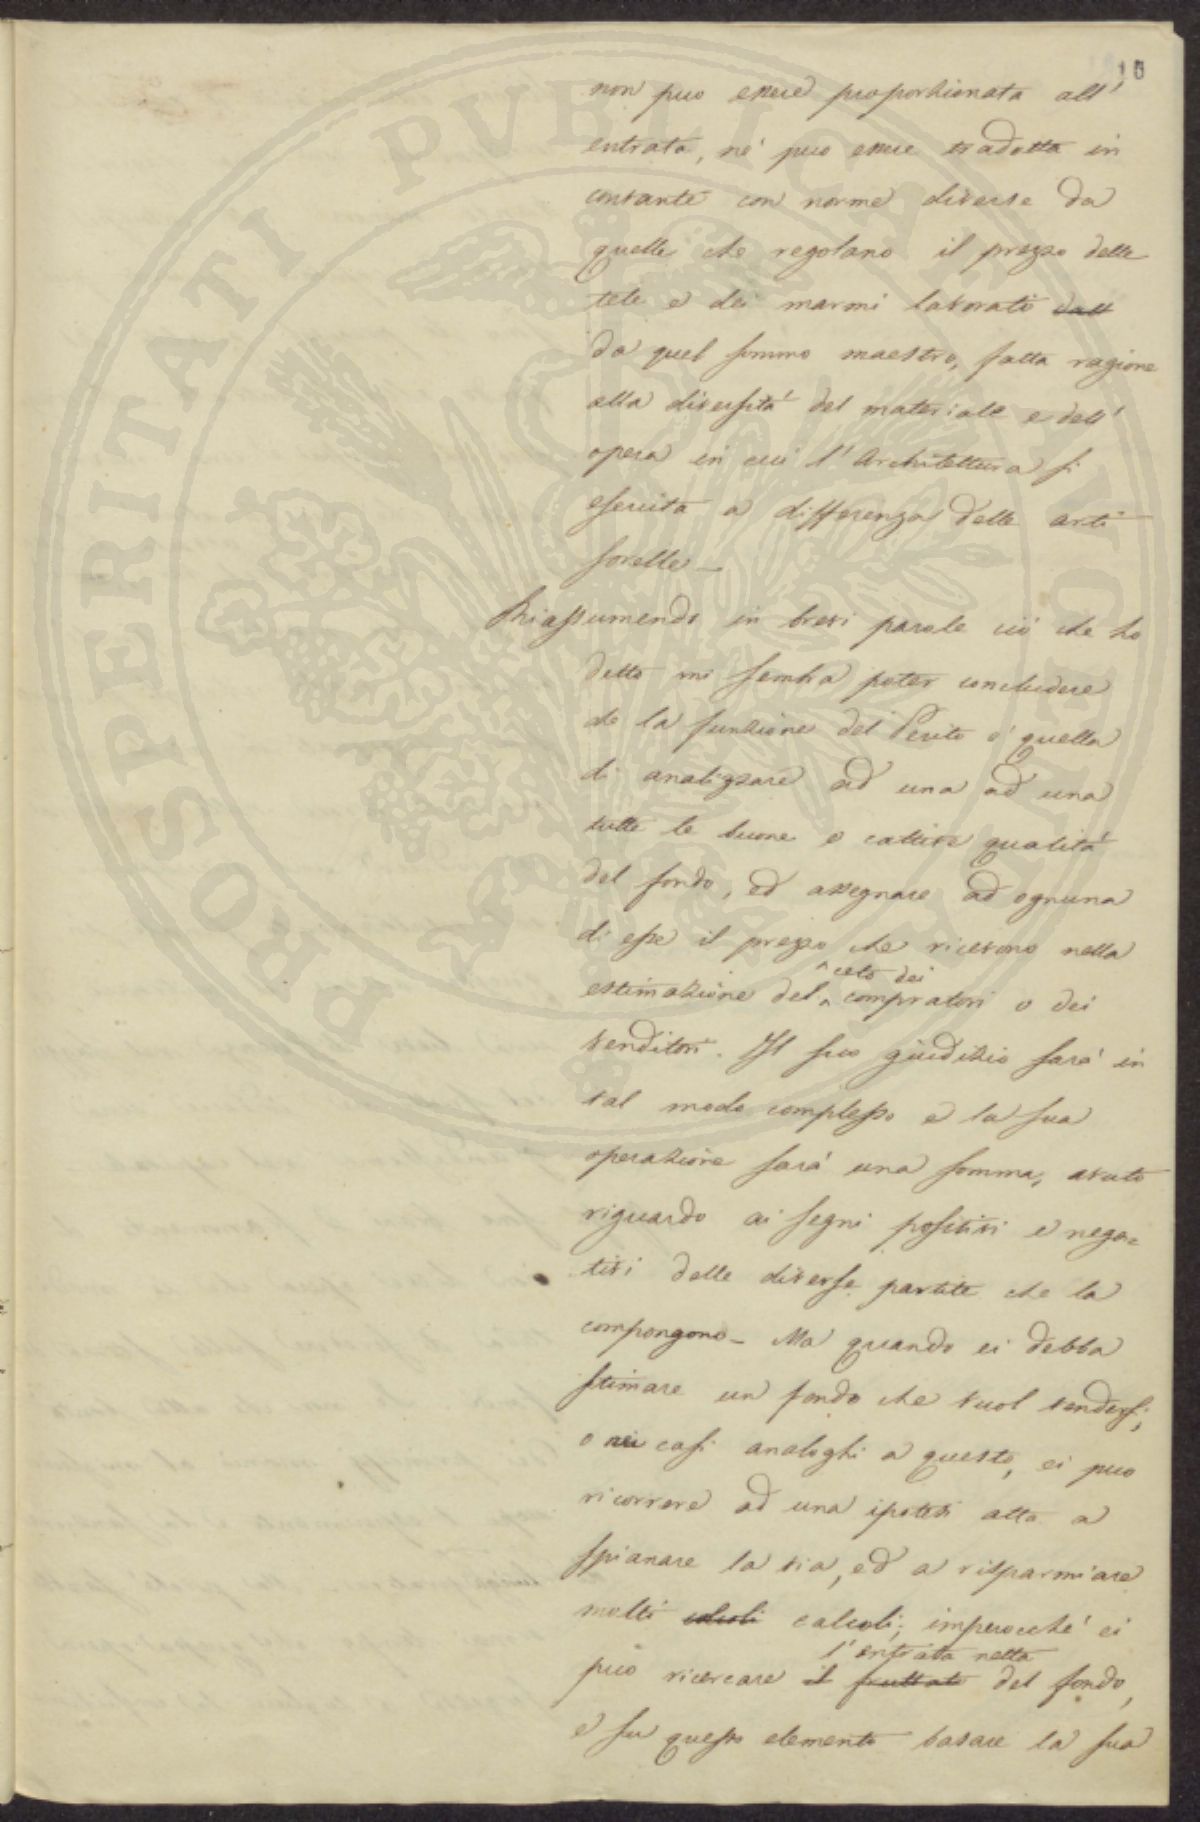 10
non può essere proporzionata all'
entrata, nè può essere tradotta in
contante con norme diverse da
quelle che regolano il prezzo delle
tele e dei marmi lavorati dall
da quel sommo maestro, fatta ragione
alla diversità del materiale e dell'
opera in cui l'Architettura si
esercita a differenza delle arti
sorelle_
Riassumendo in brevi parole ciò che ho
detto mi sembra poter concludere
che la funzione del Perito è quella
di analizzare ad una ad una
tutte le buone e cattive qualità
del fondo, ed assegnare ad ognuna
di esse il prezzo che ricevono nella
ceto dei
estimazione del compratori o dei
venditori. Il suo giudizio sarà in
tal modo complesso e la sua
operazione sarà una somma, avuto
riguardo ai segni positivi e nega=
tivi delle diverse partite che la
compongono_ Ma quando ei debba
stimare un fondo che vuol vendersi,
o nei casi analoghi a questo, ei può
ricorrere ad una ipotesi atta a
spianare la via, ed a risparmiare
molti calcoli calcoli; imperocchè ei
l'entrata netta
può ricercare il fruttato del fondo,
e su questo elemento basare la sua
PROSPERITATI PUBLICAE